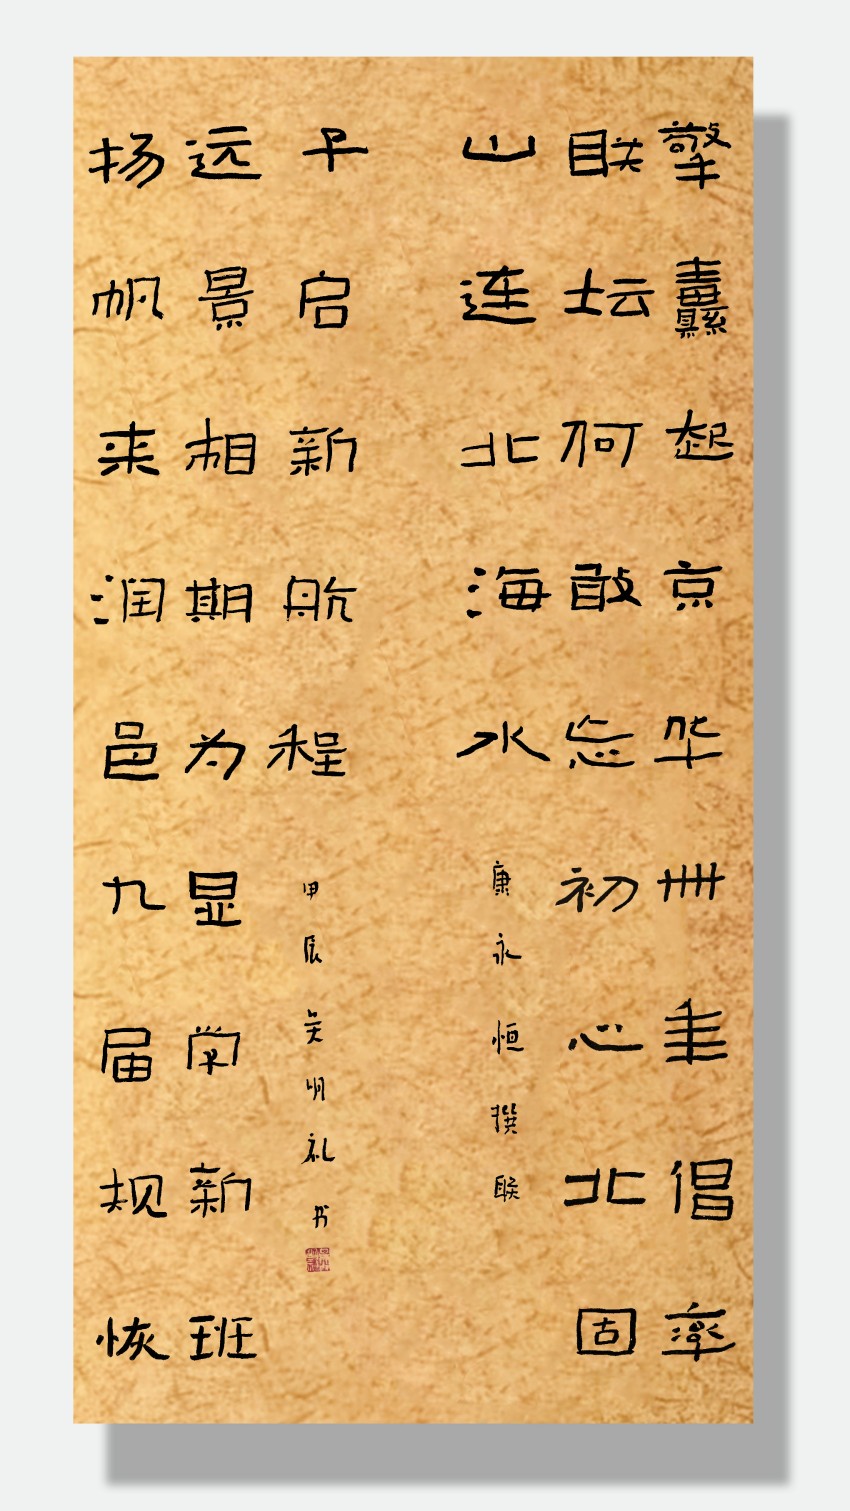 擎纛起京华卅年倡率
联坛何敢忘初心北固
山连北海水
康永恒撰联
扬帆来润邑九届规恢
远景相期为显学新班
子启新航程
甲辰吴明礼书